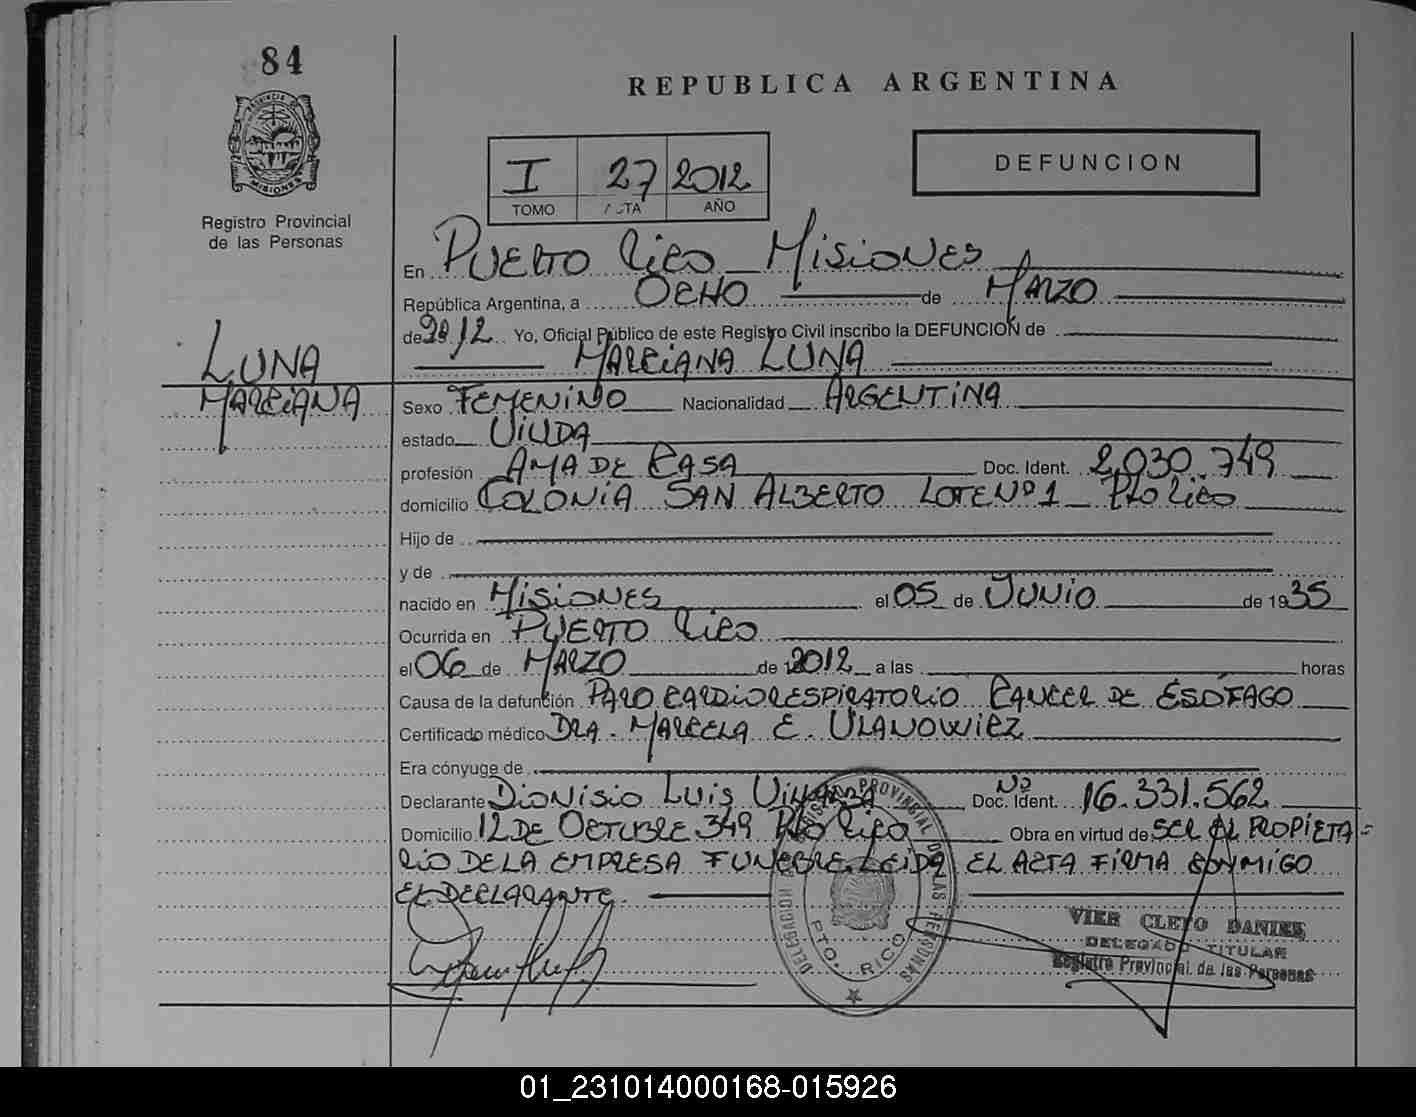 84
REPUBLICA ARGENTINA
PROVINCIA DE
MISIONES
Registro Provincial
de las Personas
I 27 2012
TOMO ACTA AÑO
DEFUNCION
En PUERTO RICO MISIONES
República Argentina, a OCHO de MARZO
de 2012 Yo, Oficial Público de este Registro Civil inscribo la DEFUNCIÓN de
MARCIANA LUNA
LUNA
MARCIANA
Sexo FEMENINO Nacionalidad ARGENTINA
estado VIUDA
profesión AMA DE CASA Doc. Ident. 2,030.749
domicilio COLONIA SAN ALBERTO LOTE Nº 1 _ Pto RICO
Hijo de
y de
nacido en MISIONES el 05 de JUNIO de 1935
Ocurrida en PUERTO RICO
el 06 de MARZO de 2012 a las horas
Causa de la defunción PARO CARDIORESPIRATORIO CANCER DE ESÓFAGO
Certificado médico DRA. MARCELA E. ULANOWICZ
Era cónyuge de
Declarante DIONISIO LUIS Doc. Ident. Nº 16.331.562
Domicilio 12 DE OCTUBRE 349 Pto RICO Obra en virtud de SER EL PROPIETA=
RIO DE LA EMPRESA FUNEBRE. LEIDA EL ACTA FIRMA CONMIGO
EL DECLARANTE.
DELEGACION REGISTRO PROVINCIAL DE LAS PERSONAS
PTO. RICO
VIER CLETO DANIEL
DELEGADO TITULAR
Registro Provincial de las Personas
01_231014000168-015926